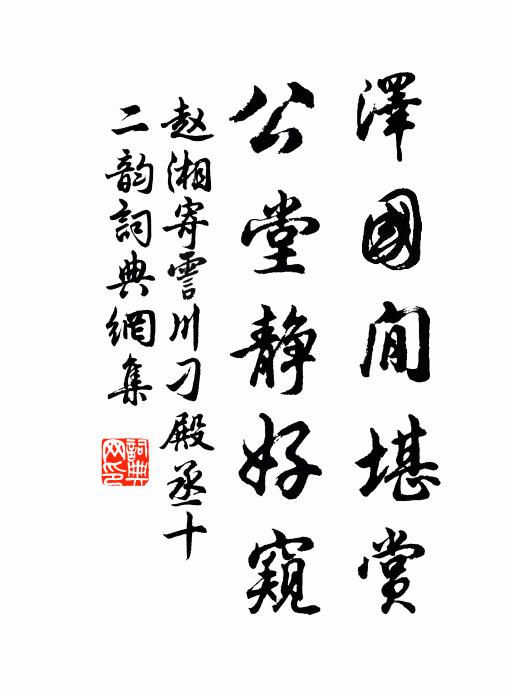 澤國閒堪賞
公堂静好窺
赵湘寄霅川刁殿丞十
二韵詞典網集
詞典网印